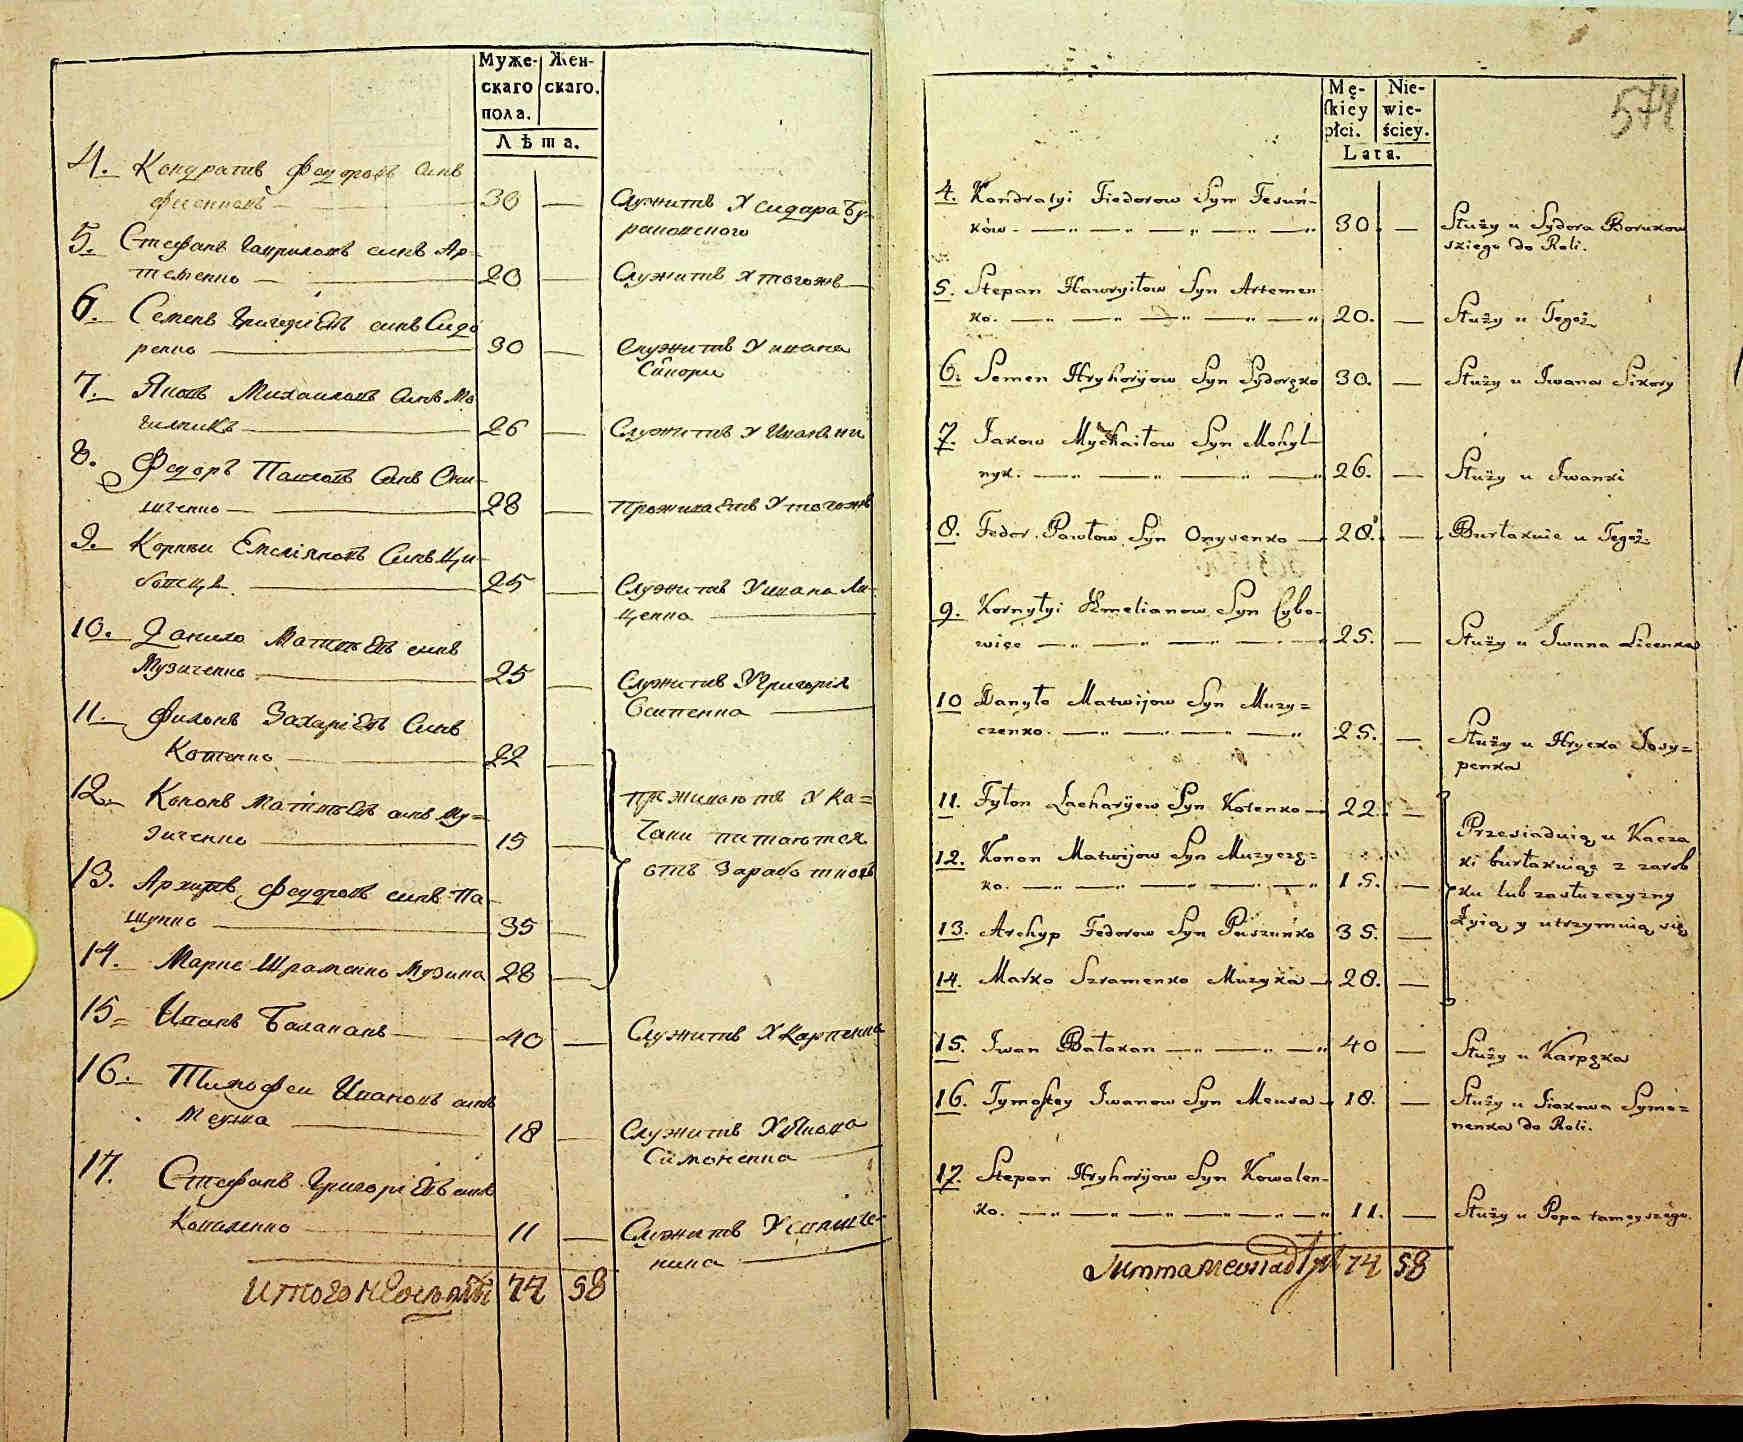 Муже- Жен-
скаго скаго.
пола.
Лѣта.
4. Кондратъ Федоровъ синъ
30 — Служитъ У Сидора Бу-
раковского
5. Стефанъ Гавриловъ синъ Ар-
теменко — 20 — Служитъ У тогожъ
6. Семенъ Григоріевъ синъ Сидо
ренко — 30 — Служитъ У Ивана
Сікори
7. Яковъ Михаиловъ Синъ Мо
гилникъ — 26 — Служитъ У Иванки
8. Федоръ Павловъ Синъ Они-
щенко — 28 — Проживаетъ У тогожъ
9. Корнѣи Емеліяновъ Синъ Ци-
бовецъ — 25 — Служитъ У Ивана Ли-
ценка
10. Данило Матвѣевъ синъ
Музиченко — 25 — Служитъ У Григорія
Осипенка
11. Филонъ Захаріевъ Синъ
Котенко — 22 —
12. Кононъ Матвѣевъ синъ Му=
зиченко — 15 — проживаютъ У Ка=
чки питаются
отъ Заработковъ
13. Архипъ Федоровъ синъ Па-
шунко — 35 —
14. Марко Шраменко Музика 28 —
15. Иванъ Балаканъ — 40 — Служитъ У Карпенка
16. Тимофеи Ивановъ синъ
Меуша — 18 — Служитъ У Якова
Симоненка
17. Стефанъ Григоріевъ синъ
Коваленко — 11 — Служитъ У священ-
ника
Итого неосѣлыхъ 74 58
574
Mę- Nie-
skiey wie-
płci. ściey.
Lata.
4. Kondratyi Fiedorow Syn Fesuń-
ków — 30. — Służy u Sydora Borukow
skiego do Roli.
5. Stepan Hawryiłow Syn Artemen
ko. — 20. — Służy u Tegoż
6. Semen Hryhoryow Syn Sydorzko 30. — Służy u Iwana Sikory
7. Jakow Mychaiłow Syn Mohyl-
nyk. — 26. — Służy u Iwanki
8. Fedor Pawłow Syn Onysenko — 28. — Burłakuie u Tegoż
9. Kornyłyi Emelianow Syn Cybo-
wiec — 25. — Służy u Iwana Licenka
10 Danyło Matwijow Syn Muzy=
czenko. — 25. — Służy u Hrycka Josy=
penka
11. Fyłon Zacharyiew Syn Kotenko — 22. —
12. Konon Matwijow Syn Muzyczę=
ko. — 15. — Przesiaduią u Kacza
ki burłakuiąc z zarob
ku lub zasłużczyzny
żyią y utrzymuią się
13. Archyp Fedorow Syn Paszuńko 35. —
14. Marko Szramenko Muzyka — 28. —
15. Iwan Bałakan — 40 — Służy u Karpęka
16. Tymoftey Iwanow Syn Meusa — 18. — Służy u Jiakowa Symo=
nenka do Roli.
17. Stepan Hryhoryow Syn Kowalen-
ko. — 11. — Służy u Popa tameyszego.
Summa nieosiadłych 74 58